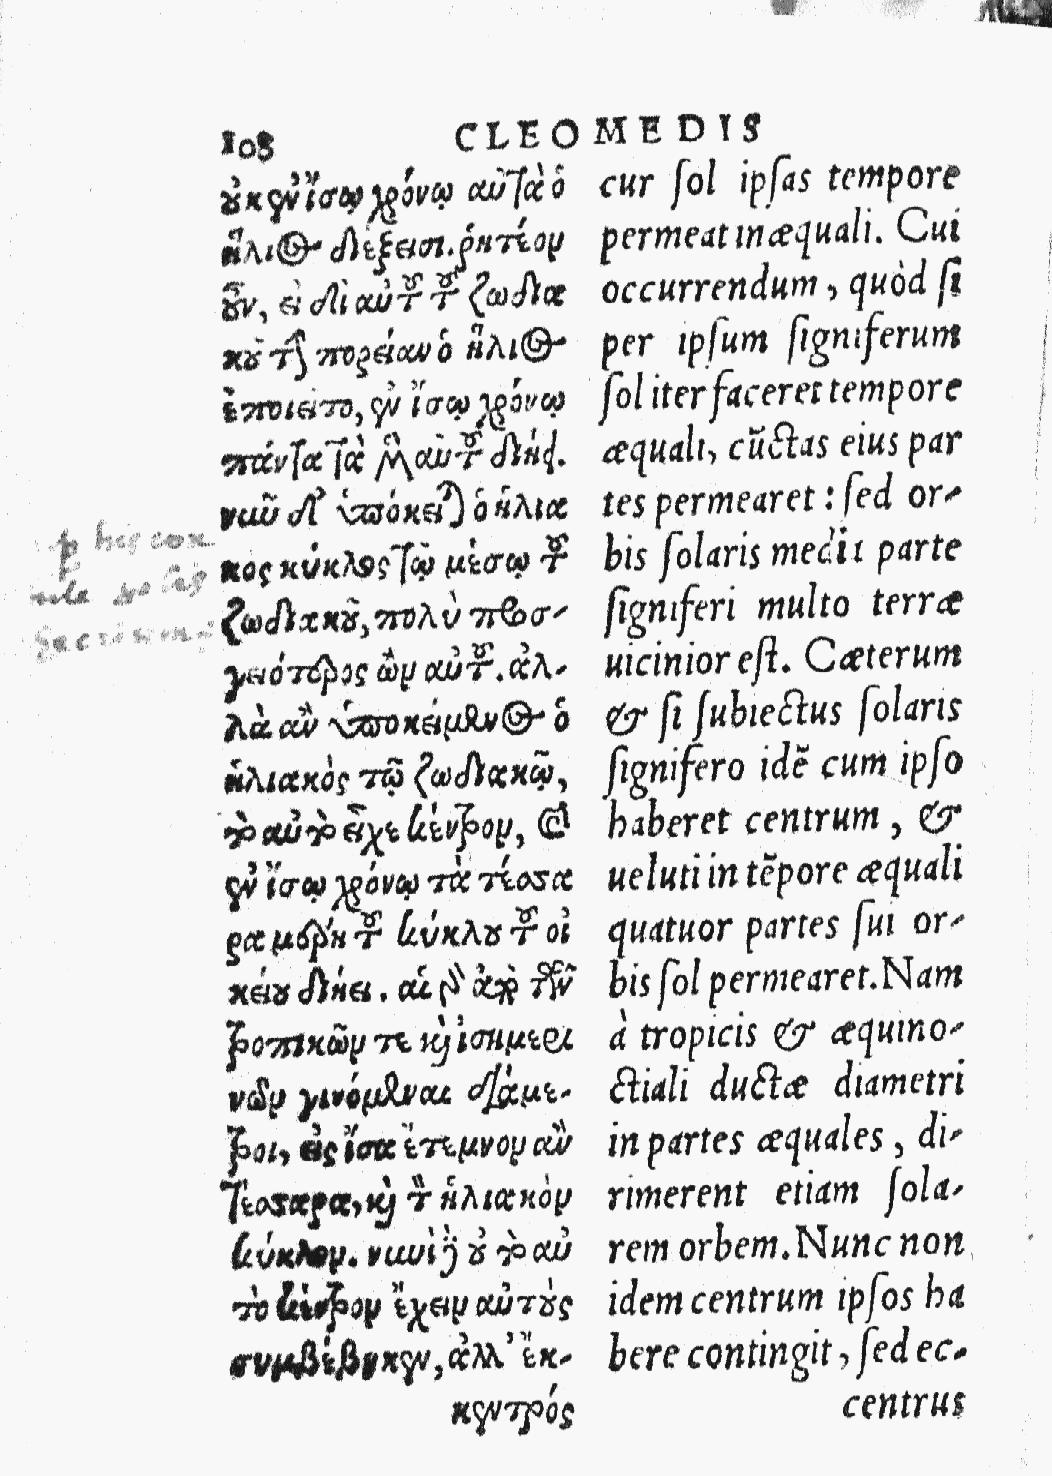 108 CLEOMEDIS
οὐκ ἐν ἴσῳ χρόνῳ αὐτὰ ὁ
ἥλιος διέξεισι. ῥητέον
οὖν, εἰ δι αὐτοῦ τοῦ ζωδια
κοῦ τὴν πορείαν ὁ ἥλιος
ἐποιεῖτο, ἐν ἴσῳ χρόνῳ
πάντα τὰ μέρη αὐτοῦ διῄει.
νυνὶ δ' ὑπόκειται ὁ ἡλια
κος κύκλος τῷ μέσῳ τοῦ
ζωδιακοῦ, πολὺ προσ-
γειότερος ὢν αὐτοῦ. ἀλ-
λὰ ἂν ὑποκείμενος ὁ
ἡλιακὸς τῷ ζωδιακῷ,
τὸ αὐτὸ εἶχε κέντρον, καὶ
ἐν ἴσῳ χρόνῳ τὰ τέσσα
ρα μέρη τοῦ κύκλου τοῦ οἰ
κείου διῄει. αἱ γὰρ ἀπὸ τῶν
τροπικῶν τε καὶ ἰσημερι
νῶν γινόμεναι διάμε-
τροι, εἰς ἴσα ἔτεμνον ἂν
τέσσαρα, καὶ τὸν ἡλιακὸν
κύκλον. νυνὶ δὲ οὐ τὸ αὐ
τὸ κέντρον ἔχειν αὐτοὺς
συμβέβηκεν, ἀλλ' ἔκ-
κεντρός
cur sol ipsas tempore
permeat inæquali. Cui
occurrendum, quòd si
per ipsum signiferum
sol iter faceret tempore
æquali, cũctas eius par
tes permearet: sed or-
bis solaris medii parte
signiferi multo terræ
uicinior est. Cæterum
& si subiectus solaris
signifero idẽ cum ipso
haberet centrum, &
ueluti in tẽpore æquali
quatuor partes sui or-
bis sol permearet. Nam
à tropicis & æquino-
ctiali ductæ diametri
in partes æquales, di-
rimerent etiam sola-
rem orbem. Nunc non
idem centrum ipsos ha
bere contingit, sed ec-
centrus